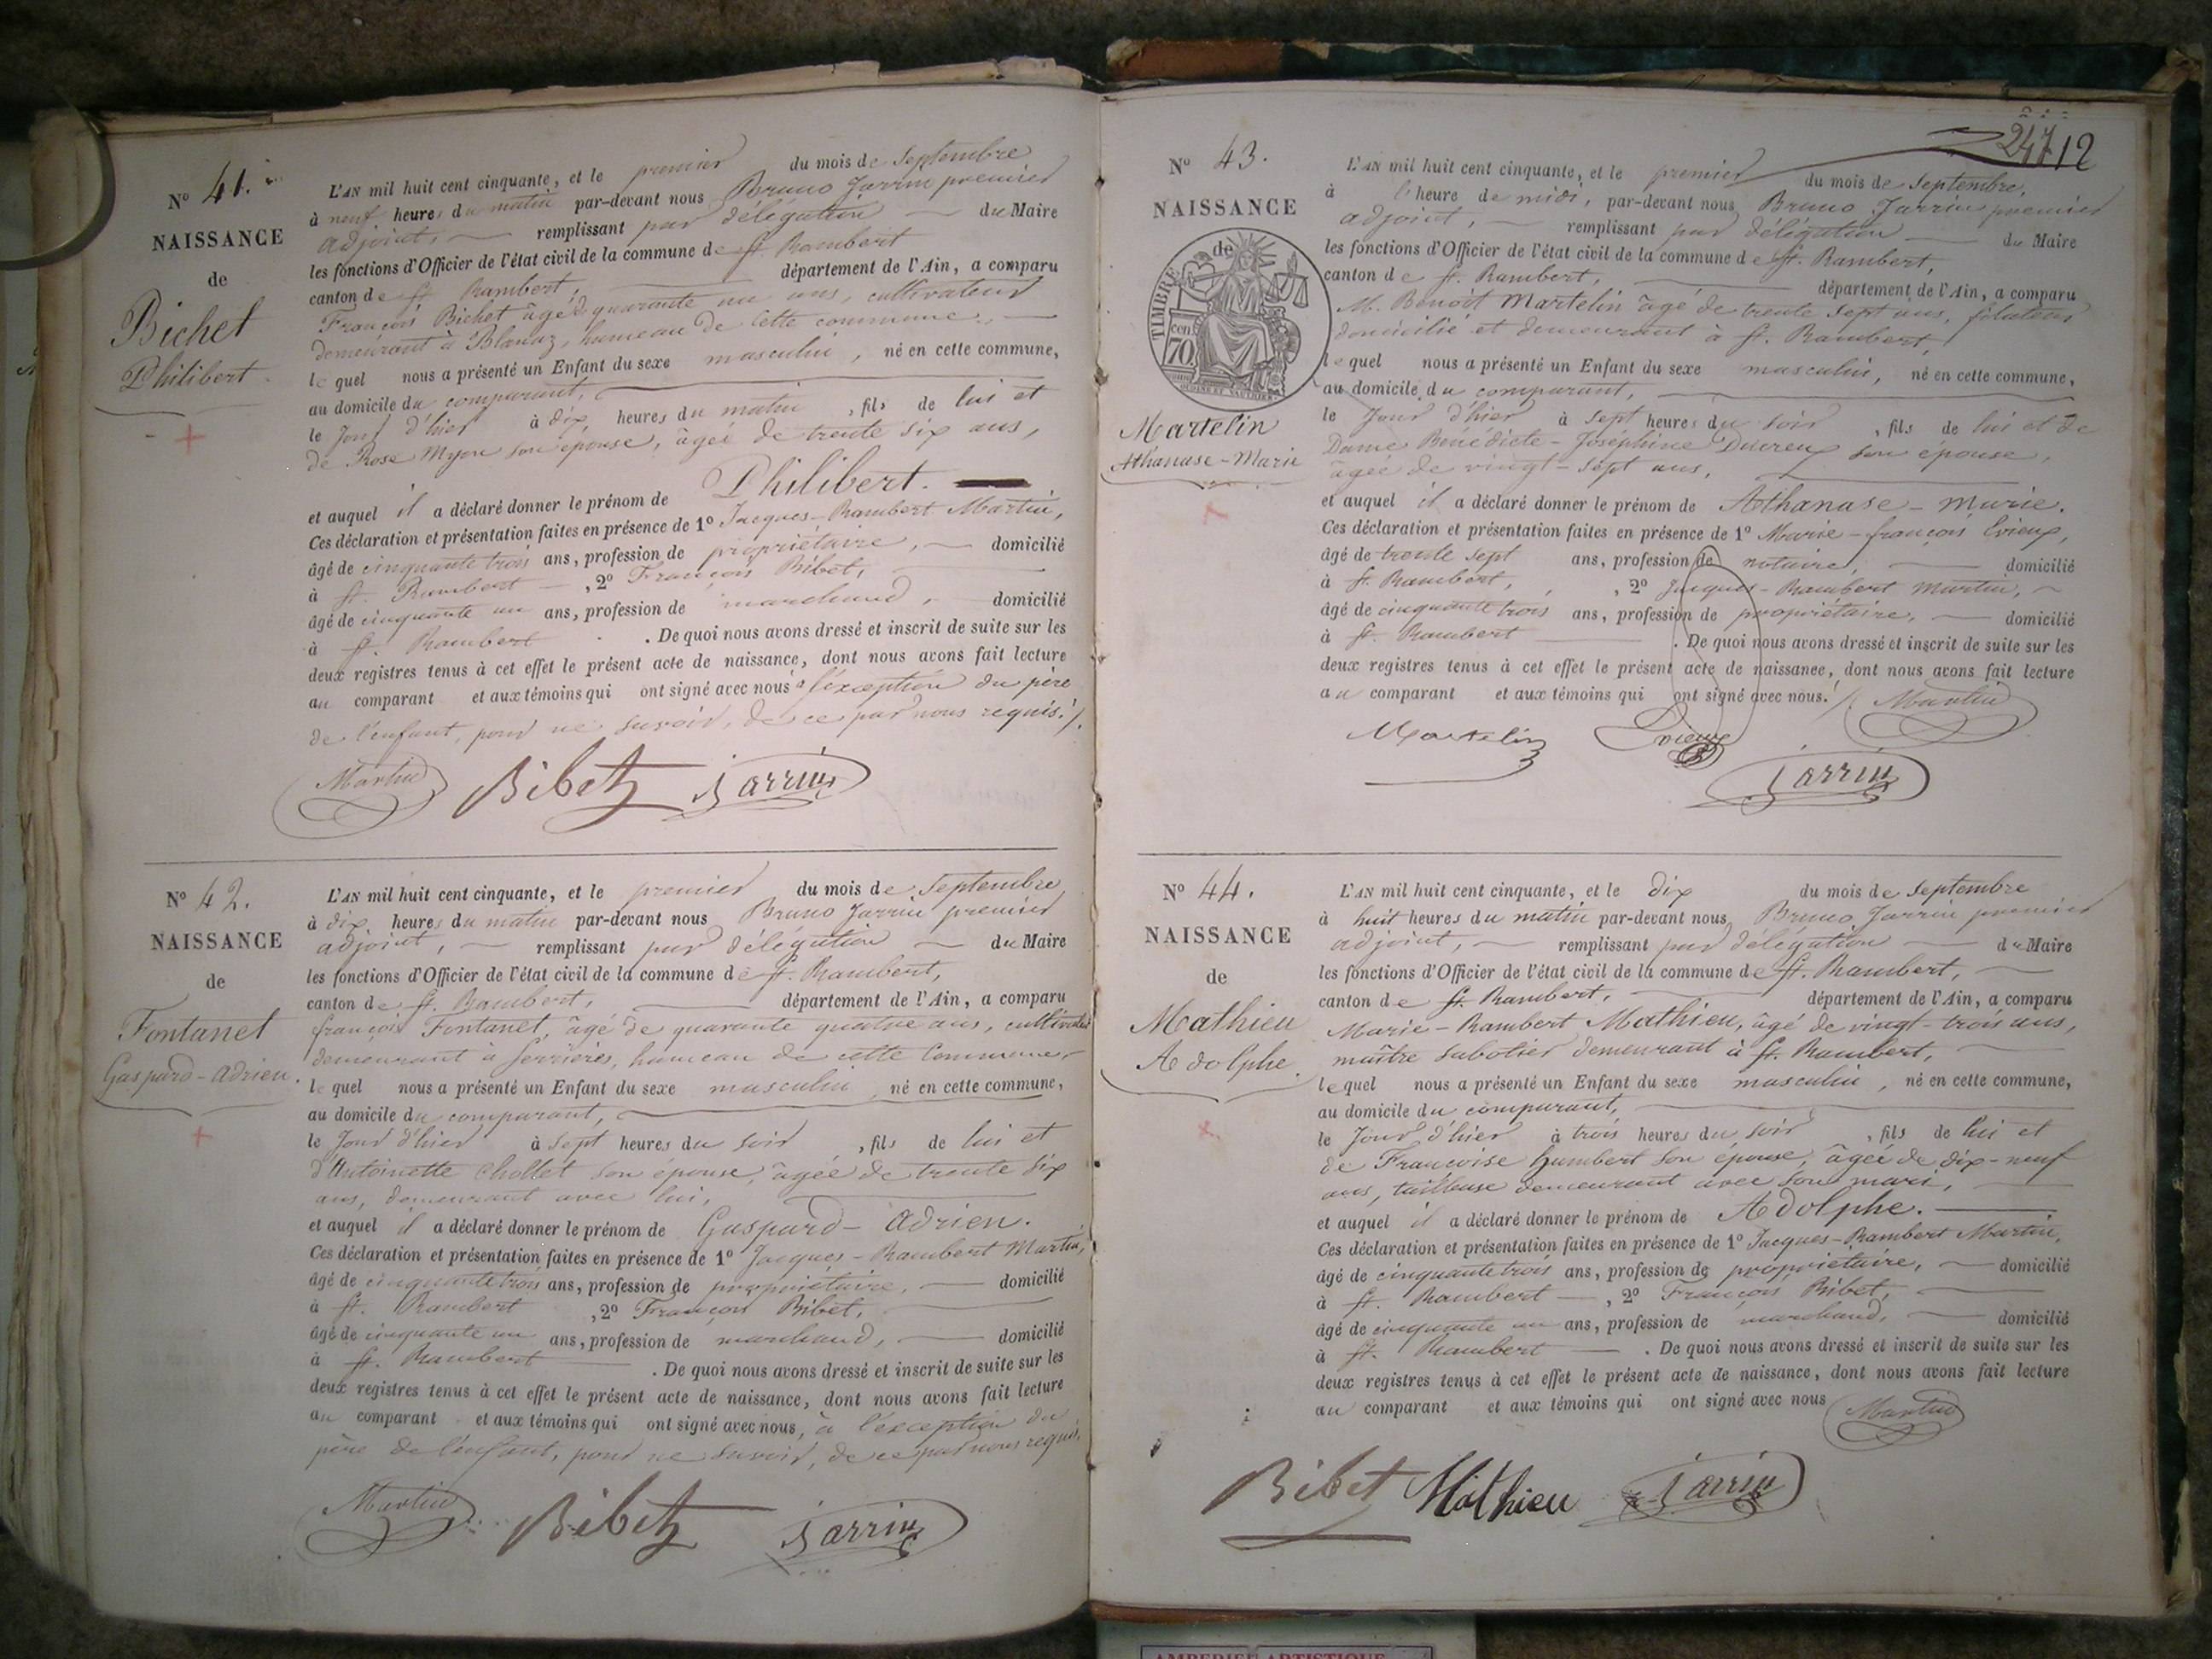 N° 41.
NAISSANCE
de
Bichet
Philibert.
L'AN mil huit cent cinquante, et le premier du mois de Septembre
à neuf heures du matin par-devant nous Bruno Jarrin premier
adjoint, remplissant par délégation du Maire
les fonctions d'Officier de l'état civil de la commune de St. Rambert
canton de St. Rambert, département de l'Ain, a comparu
François Bichet âgé de quarante un ans, cultivateur
demeurant à Blanaz, hameau de cette commune,
lequel nous a présenté un Enfant du sexe masculin, né en cette commune,
au domicile du comparant,
le jour d'hier à dix heures du matin, fils de lui et
de Rose Myon son épouse, âgée de trente six ans,
et auquel il a déclaré donner le prénom de Philibert.
Ces déclaration et présentation faites en présence de 1° Jacques-Rambert Martin,
âgé de cinquante trois ans, profession de propriétaire, domicilié
à St. Rambert, 2° François Bibet,
âgé de cinquante un ans, profession de marchand, domicilié
à St. Rambert. De quoi nous avons dressé et inscrit de suite sur les
deux registres tenus à cet effet le présent acte de naissance, dont nous avons fait lecture
au comparant et aux témoins qui ont signé avec nous à l'exception du père
de l'enfant, pour ne savoir, de ce par nous requis./.
Martin Bibet Jarrin
N° 42.
NAISSANCE
de
Fontanet
Gaspard-Adrien.
L'AN mil huit cent cinquante, et le premier du mois de Septembre,
à dix heures du matin par-devant nous Bruno Jarrin premier
adjoint, remplissant par délégation du Maire
les fonctions d'Officier de l'état civil de la commune de St. Rambert,
canton de St. Rambert, département de l'Ain, a comparu
françois Fontanet, âgé de quarante quatre ans, cultivateur
demeurant à Serrières, hameau de cette Commune,
lequel nous a présenté un Enfant du sexe masculin, né en cette commune,
au domicile du comparant,
le jour d'hier à sept heures du soir, fils de lui et
d'Antoinette Chollet son épouse, âgée de trente six
ans, demeurant avec lui,
et auquel il a déclaré donner le prénom de Gaspard-Adrien.
Ces déclaration et présentation faites en présence de 1° Jacques-Rambert Martin,
âgé de cinquante trois ans, profession de propriétaire, domicilié
à St. Rambert, 2° François Bibet,
âgé de cinquante un ans, profession de marchand, domicilié
à St. Rambert. De quoi nous avons dressé et inscrit de suite sur les
deux registres tenus à cet effet le présent acte de naissance, dont nous avons fait lecture
au comparant et aux témoins qui ont signé avec nous, à l'exception du
père de l'enfant, pour ne savoir, de ce par nous requis.
Martin Bibet Jarrin
24712
N° 43.
NAISSANCE
de
TIMBRE
cen
70
Martelin
Athanase-Marie
L'AN mil huit cent cinquante, et le premier du mois de Septembre,
à l'heure de midi, par-devant nous Bruno Jarrin premier
adjoint, remplissant par délégation du Maire
les fonctions d'Officier de l'état civil de la commune de St. Rambert,
canton de St. Rambert, département de l'Ain, a comparu
M. Benoît Martelin âgé de trente sept ans, filateur
domicilié et demeurant à St. Rambert,
lequel nous a présenté un Enfant du sexe masculin, né en cette commune,
au domicile du comparant,
le jour d'hier à sept heures du soir, fils de lui et de
Dame Bénédicte-Joséphine Ducreux son épouse,
âgée de vingt-sept ans,
et auquel il a déclaré donner le prénom de Athanase-Marie.
Ces déclaration et présentation faites en présence de 1° Marie-françois Evieux,
âgé de trente sept ans, profession de notaire, domicilié
à St. Rambert, 2° Jacques-Rambert Martin,
âgé de cinquante trois ans, profession de propriétaire, domicilié
à St. Rambert. De quoi nous avons dressé et inscrit de suite sur les
deux registres tenus à cet effet le présent acte de naissance, dont nous avons fait lecture
au comparant et aux témoins qui ont signé avec nous./. Martin
Martelin Evieux
Jarrin
N° 44.
NAISSANCE
de
Mathieu
Adolphe.
L'AN mil huit cent cinquante, et le dix du mois de Septembre
à huit heures du matin par-devant nous Bruno Jarrin premier
adjoint, remplissant par délégation du Maire
les fonctions d'Officier de l'état civil de la commune de St. Rambert,
canton de St. Rambert, département de l'Ain, a comparu
Marie-Rambert Mathieu, âgé de vingt-trois ans,
maître sabotier demeurant à St. Rambert,
lequel nous a présenté un Enfant du sexe masculin, né en cette commune,
au domicile du comparant,
le jour d'hier à trois heures du soir, fils de lui et
de Françoise humbert son épouse, âgée de dix-neuf
ans, tailleuse demeurant avec son mari,
et auquel il a déclaré donner le prénom de Adolphe.
Ces déclaration et présentation faites en présence de 1° Jacques-Rambert Martin,
âgé de cinquante trois ans, profession de propriétaire, domicilié
à St. Rambert, 2° François Bibet,
âgé de cinquante un ans, profession de marchand, domicilié
à St. Rambert. De quoi nous avons dressé et inscrit de suite sur les
deux registres tenus à cet effet le présent acte de naissance, dont nous avons fait lecture
au comparant et aux témoins qui ont signé avec nous Martin
Bibet Mathieu Jarrin